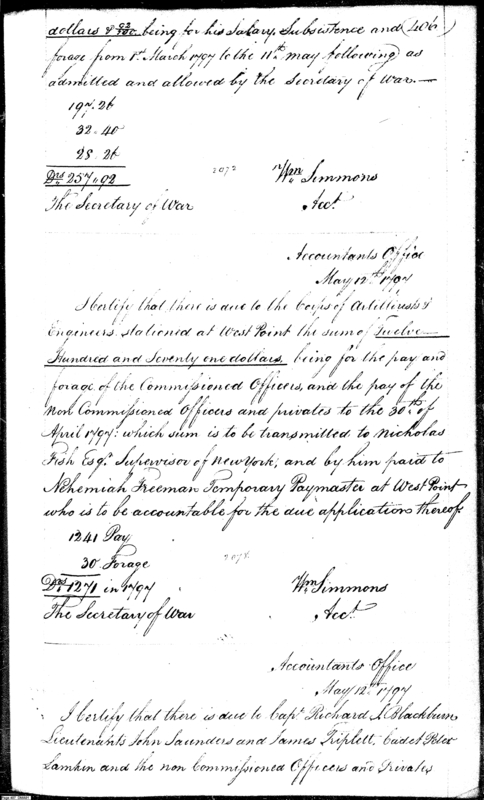 dollars & 92/100 being for his Salary, Subsistence and 406
forage from 1st March 1797 to the 11th may following as
admitted and allowed by the Secretary of War.
197.26
32.40
28.26
Drs 257.92
2072
Wm Simmons
The Secretary of War
Acct.
Accountants Office
May 12th 1797
I Certify that there is due to the Corps of Artillerists &
Engineers, stationed at West Point the sum of Twelve
Hundred and Seventy one dollars being for the pay and
forage of the Commissioned Officers, and the pay of the
Non Commissioned Officers and privates to the 30th of
April 1797: which sum is to be transmitted to Nicholas
Fish Esqr. Supervisor of New York, and by him paid to
Nehemiah Freeman Temporary Paymaster at West Point
who is to be accountable for the due application thereof
1241 Pay
30 Forage
Drs 1271 in 1797
Wm Simmons
The Secretary of War
Acct.
Accountants Office
May 12th 1797
I Certify that there is due to Capt. Richard S. Blackburn
Lieutenants John Saunders and James Triplett, Cadet Peter
Lamkin and the non Commissioned Officers and Privates